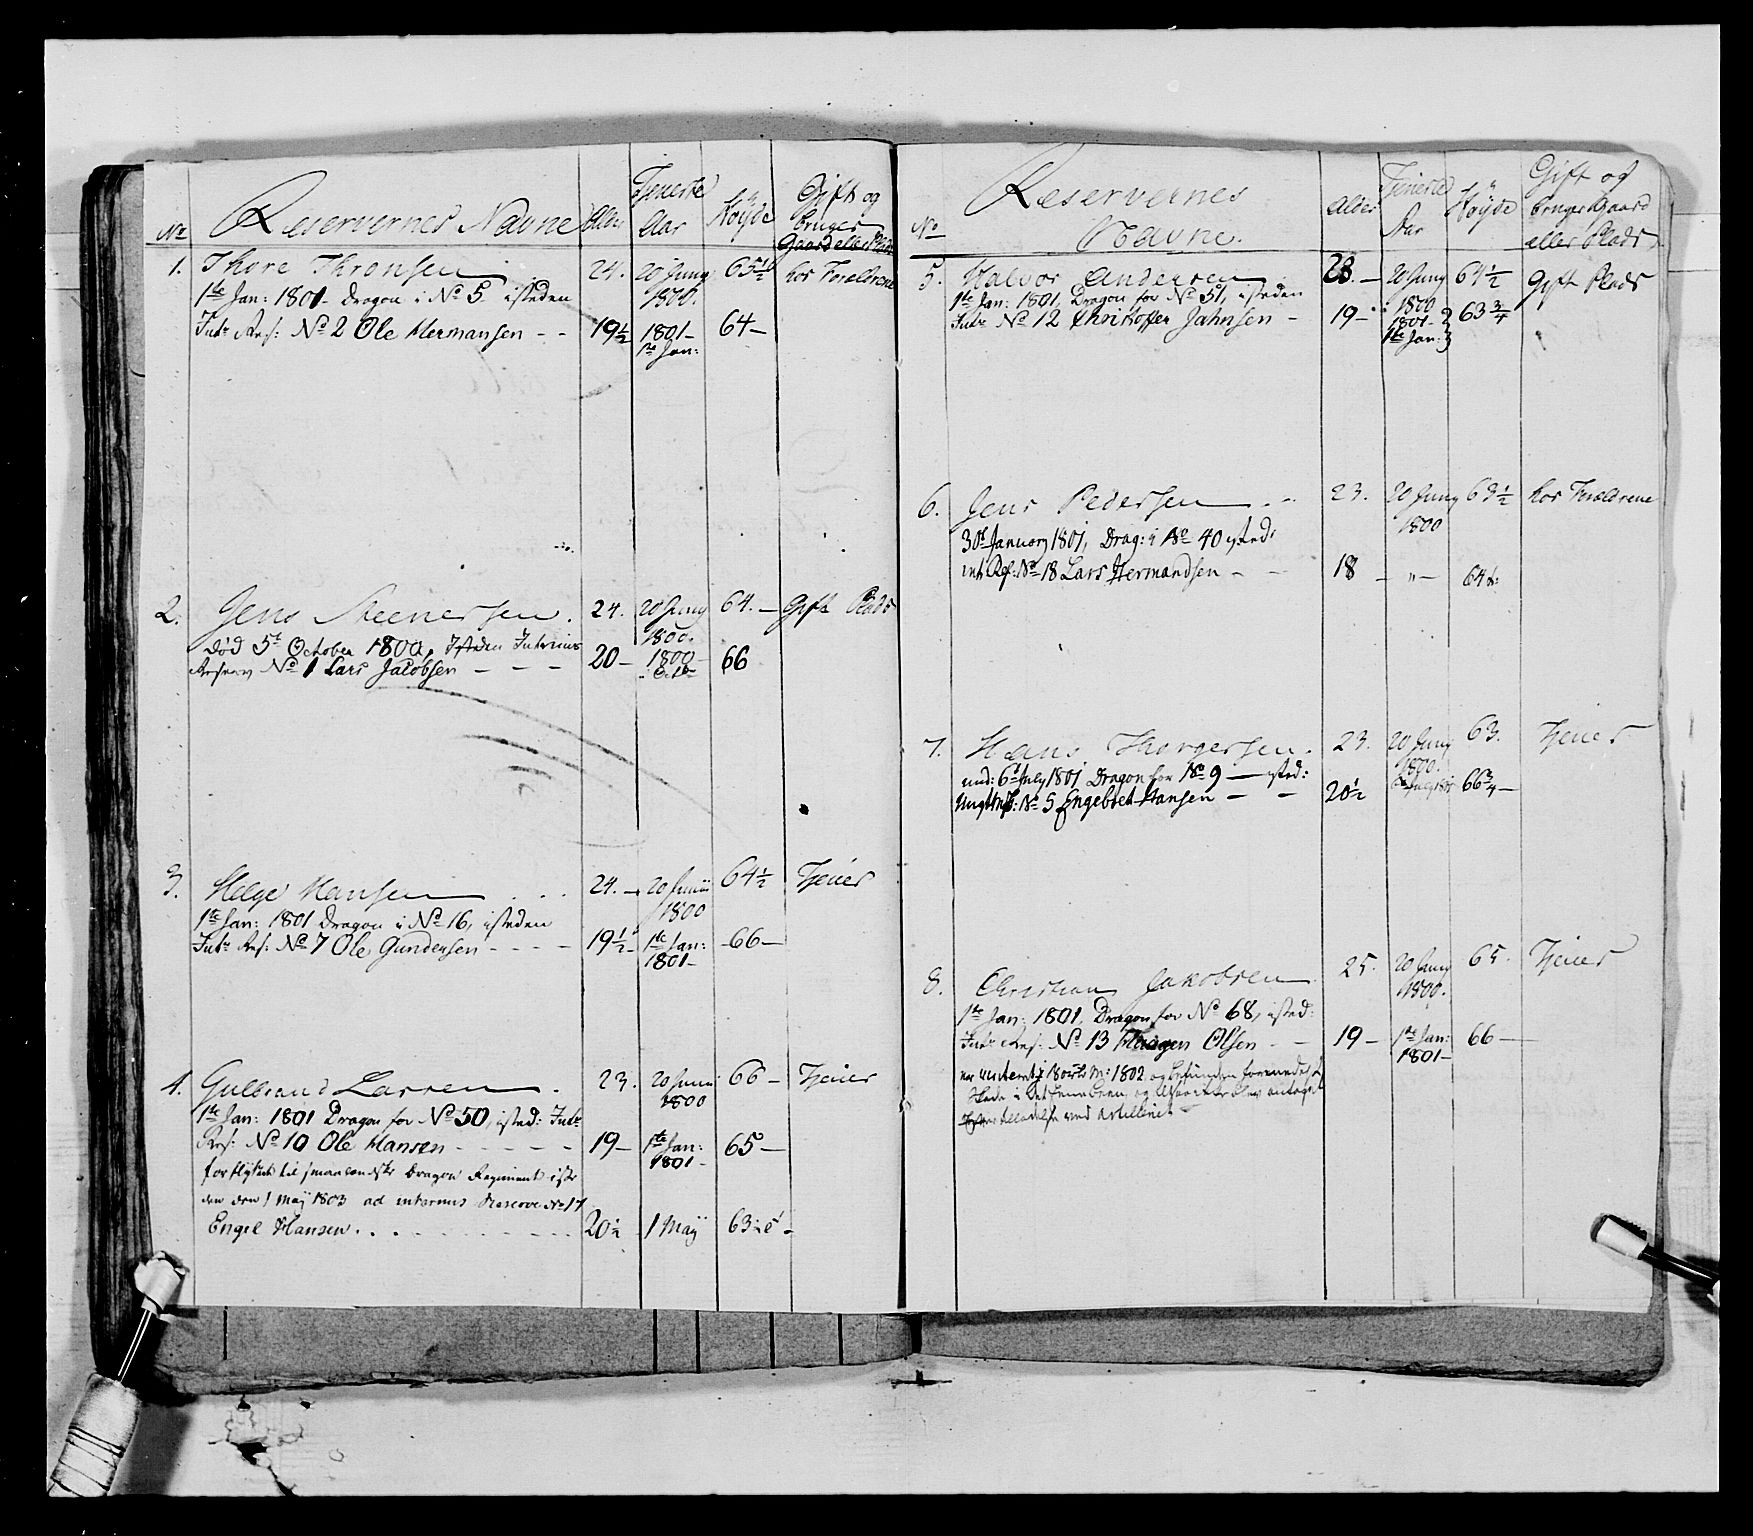 No Reservernes Navne Alder Tjeneste Aar Høyde Gift og bruger Gaard eller Plads
1. Thore Thronsen 24. 20 Juny 1800. 65½ hos Forældrene
1te Jan: 1801 Dragon i No 5 isteden
Intr Res: No 2 Ole Hermansen - - 19½ 1801 - 1te Jan: 64 -
2. Jens Steenersen. 24. 20 Juny 1800. 64. - Gift Plads
død 5t October 1800, Isteden Interims
Reserv No 1 Lars Jacobsen - - - 20 - 1800 - Octbr 66
3. Helge Hansen 24. - 20 Junii 1800 64½ Tjener
1te Jan: 1801 Dragon i No 16, isteden
Intr Res: No 7 Ole Gundersen - - - - 19½ - 1te Jan: 1801 - 66 -
4. Gulbrand Larsen. 23. 20 Junii 1800 66 - Tjener
1te Jan: 1801 Dragon for No 50, isted: Intr
Res: No 10 Ole Hansen - - - - - 19 - 1te Jan: 1801 - 65 -
forflyttet til smaalendske Dragon Regiment iste
den den 1 Maij 1803 ad interims Reserve No 17
Engel Hansen . . . 20½ 1 Maij 63
No Reservernes Navne. Alder Tjeneste Aar Høyde Gift og bruger Gaard eller Plads
5. Halvor Andersen 28. - 20 Juny 1800 64½ Gift Plads
1te Jan: 1801, Dragon for No 51, isteden
Intr No 12 Christoffer Jahnsen - 19 - 1801 - 1te Jan: 63¾
6. Jens Pedersen 23. 20 Juny 1800 63½ hos Forældrene
30t January 1801, Drag: i No 40 isted:
int: Res: No 18 Lars Hermandsen - - 18 - " - 64
7. Hans Thorgersen. 23. 20 Juny 1800. 63. Tjener
und: 6t July 1801 Dragon for No 9 - isted:
No 5 Engebret Hansen - - 20½ 66¾ -
8. Christian Jakobsen 25. 20 Juny 1800. 65. Tjener
1te Jan: 1801, Dragon for No 68, isted:
Intr Res: No 13 Haagen Olsen - - 19 - 1te Jan: 1801 - 66 -
1802 og befunden formedelst
Skade i det Benn og
med Artilleriet